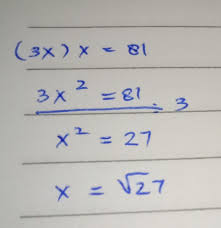 (3x) x = 81
3x² = 81 3
x² = 27
x = √27